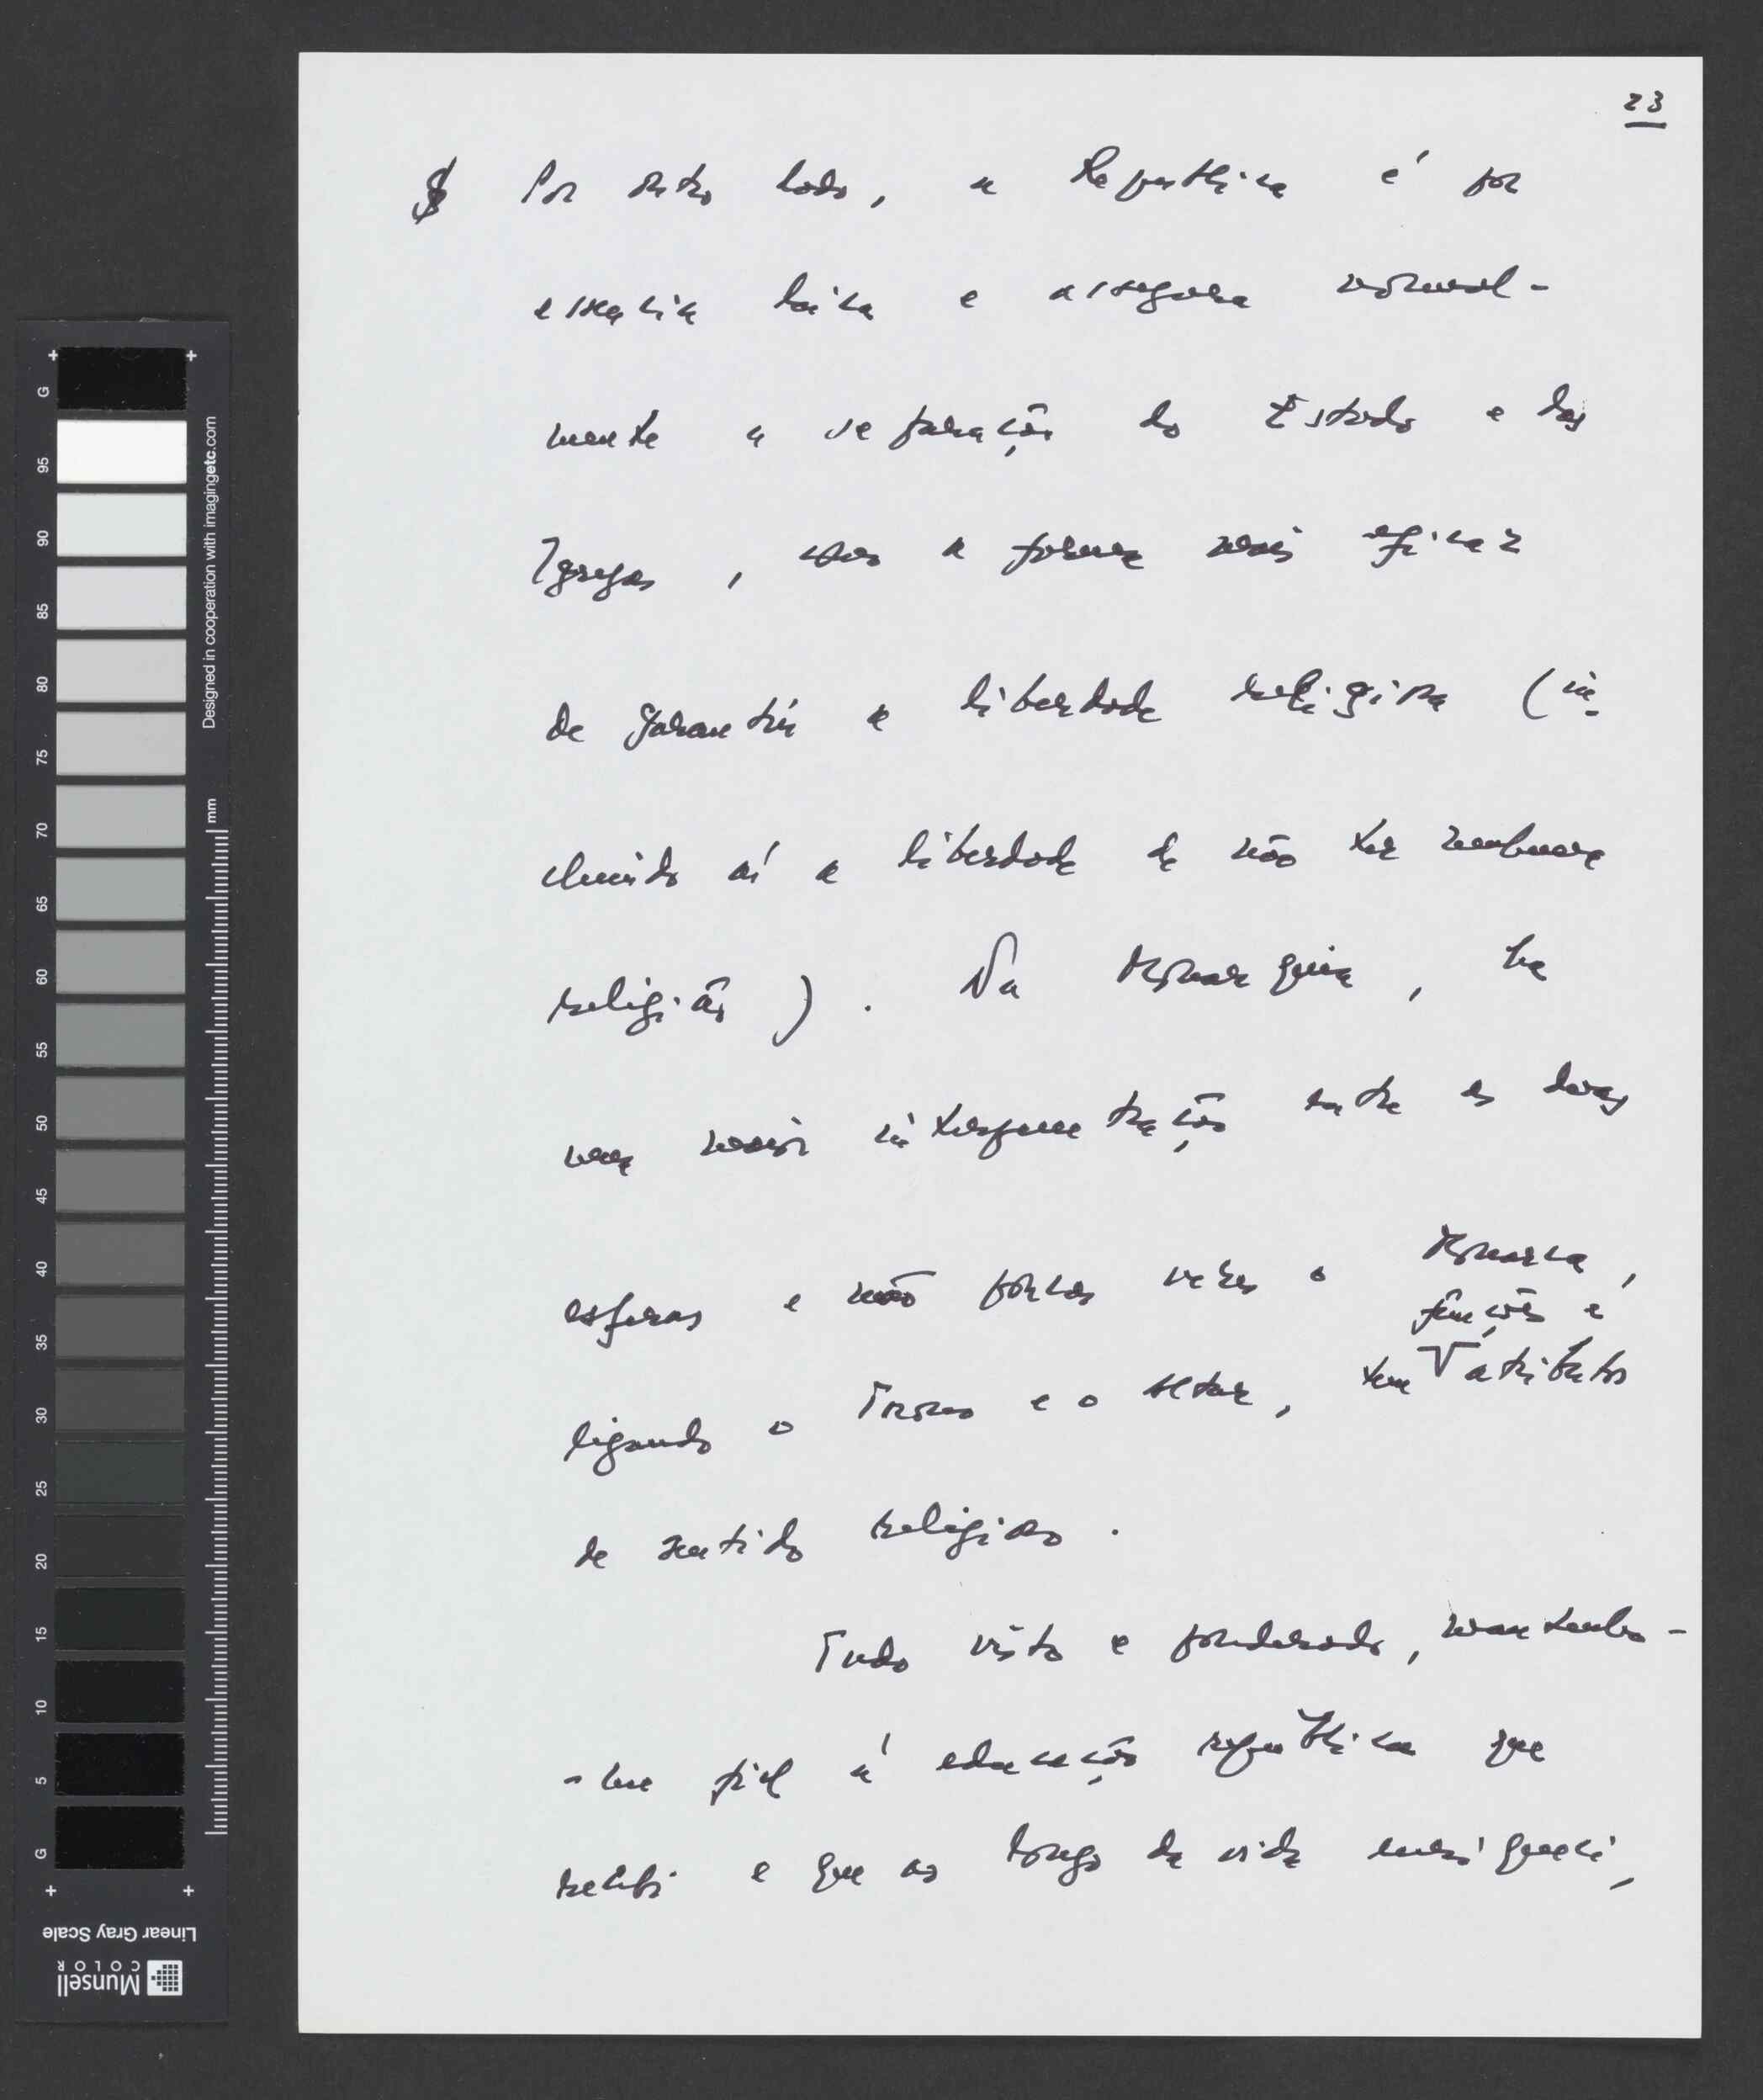 23
§ Por outro lado, a Republica é por
essencia laica e assegura normal-
mente a separação do Estado e das
Igrejas, com a forma mais eficaz
de garantir a liberdade religiosa (in-
cluindo aí a liberdade de não ter nenhuma
religião). Na Monarquia, ha
uma maior interpenetração entre as duas
esferas e não poucas vezes o Monarca,
funções e
ligando o Trono e o Altar, tem V atributos
de sentido religioso.
Tudo visto e ponderado, mantenho-
-me fiel á educação republicana que
recebi e que ao longo da vida enriqueci,
G
95
90
85
80
75
70
65
60
55
50
45
40
35
30
25
20
15
10
5
G
mm
Designed in cooperation with imagingetc.com
Linear Gray Scale
Munsell
COLOR